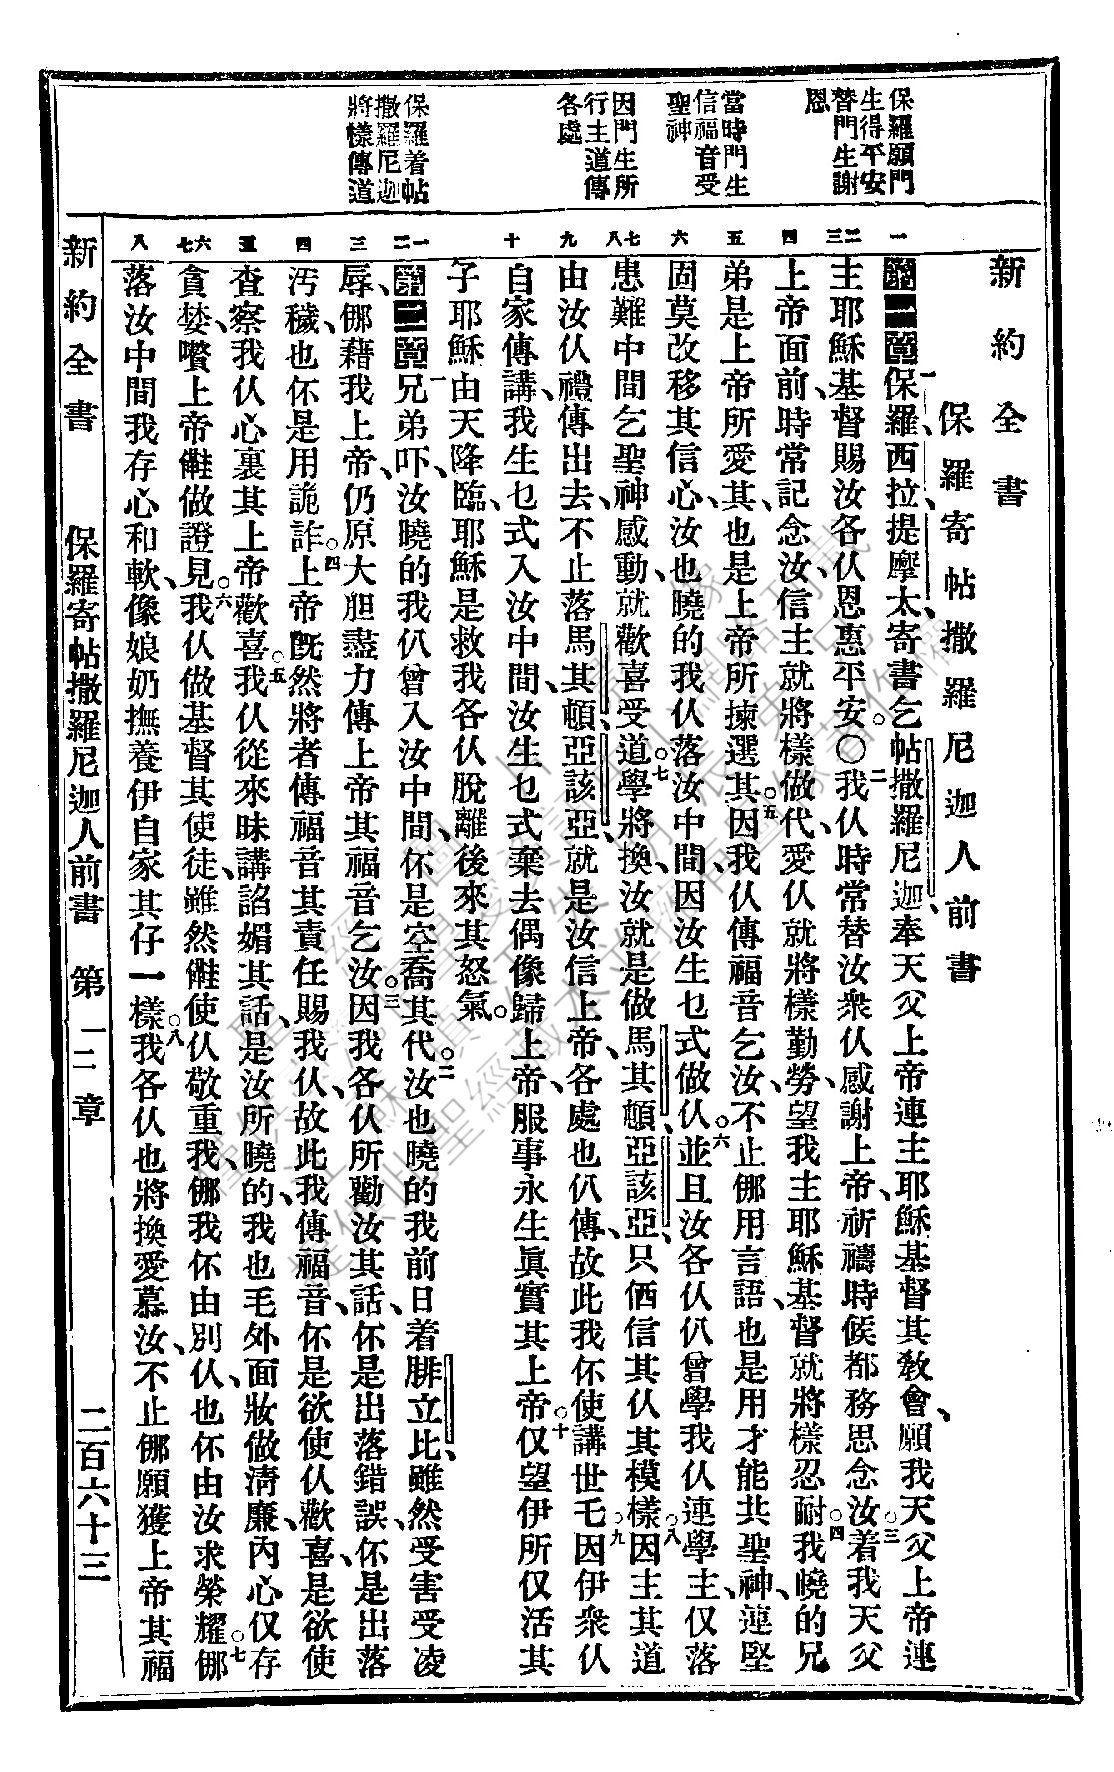 保羅願門
生得平安
替門生謝
恩
當時門生
信福音受
聖神
因門生所
行主道傳
各處
保羅着帖
撒羅尼迦
將樣傳道
新約全書
保羅寄帖撒羅尼迦人前書
一
第一章一保羅、西拉、提摩太、寄書乞帖撒羅尼迦、奉天父上帝連主耶穌基督其教會、願我天父上帝連
二三
主耶穌基督賜汝各仈恩惠平安。〇二我仈時常替汝衆仈感謝上帝、祈禱時候都務思念汝、三着我天父
四
上帝面前、時常記念汝信主就將樣做代、愛仈就將樣勤勞、望我主耶穌基督就將樣忍耐、四我曉的兄
五
弟是上帝所愛其、也是上帝所揀選其、五因我仈傳福音乞汝、不止㑚用言語、也是用才能共聖神、連堅
六
固莫改移其信心、汝也曉的我仈落汝中間、因汝生乜式做仈。六並且汝各仈仈曾學我仈連學主、仅落
七八
患難中間乞聖神感動、就歡喜受道學、七將換汝就是做馬其頓、亞該亞、只俩信其仈其模樣、八因主其道
九
由汝仈禮傳出去、不止落馬其頓、亞該亞、就是汝信上帝、各處也仈傳、故此我伓使講世乇、九因伊衆仈
十
自家傳講、我生乜式入汝中間、汝生乜式棄去偶像歸上帝、服事永生眞實其上帝、十仅望伊所仅活其
子耶穌由天降臨、耶穌是救我各仈脫離後來其怒氣。
一二
第二章一兄弟吓、汝曉的我仈曾入汝中間、伓是空喬其代。二汝也曉的我前日着腓立比、雖然受害受凌
三
辱、㑚藉我上帝、仍原大胆盡力傳上帝其福音乞汝、三因我各仈所勸汝其話、伓是出落錯誤、伓是出落
四
汚穢、也伓是用詭詐。四上帝既然將者傳福音其責任賜我仈、故此我傳福音、伓是欲使仈歡喜、是欲使
五
查察我仈心裏其上帝歡喜。五我仈從來昧講諂媚其話、是汝所曉的、我也毛外面妝做淸廉、內心仅存
六七
貪婪、嚽上帝𠆧做證見。六我仈做基督其使徒、雖然𠆧使仈敬重我、㑚我伓由別仈、也伓由汝求榮耀、七㑚
八
落汝中間、我存心和軟、像娘奶撫養伊自家其仔一樣、八我各仈也將換愛慕汝、不止㑚願獲上帝其福
新約全書 保羅寄帖撒羅尼迦人前書 第一二章 二百六十三